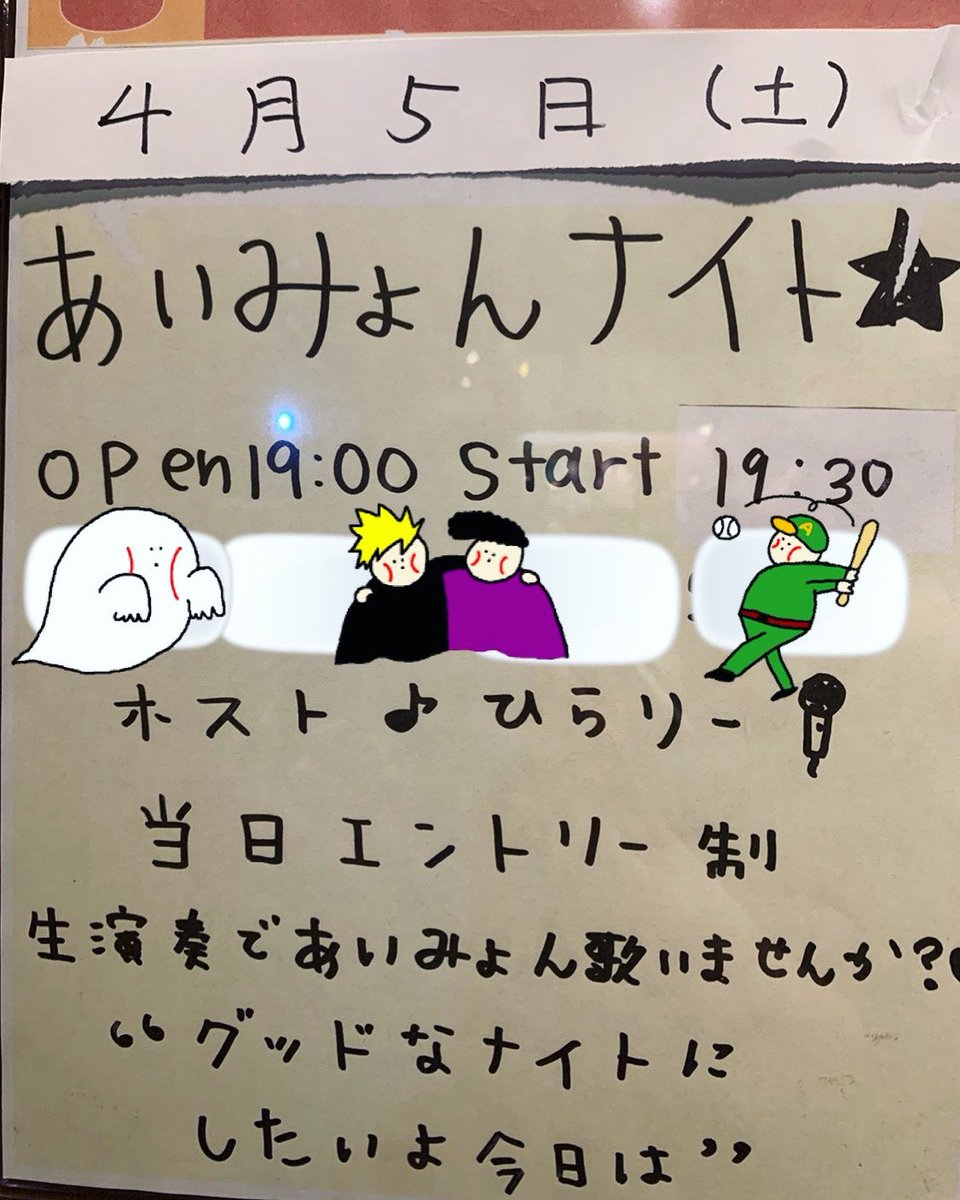 4月5日(土)
あいみょんナイト★
open 19:00 Start 19:30
ホスト♪ひらりー
当日エントリー制
生演奏であいみょん歌いませんか?
“グッドなナイトに
したいよ今日は”